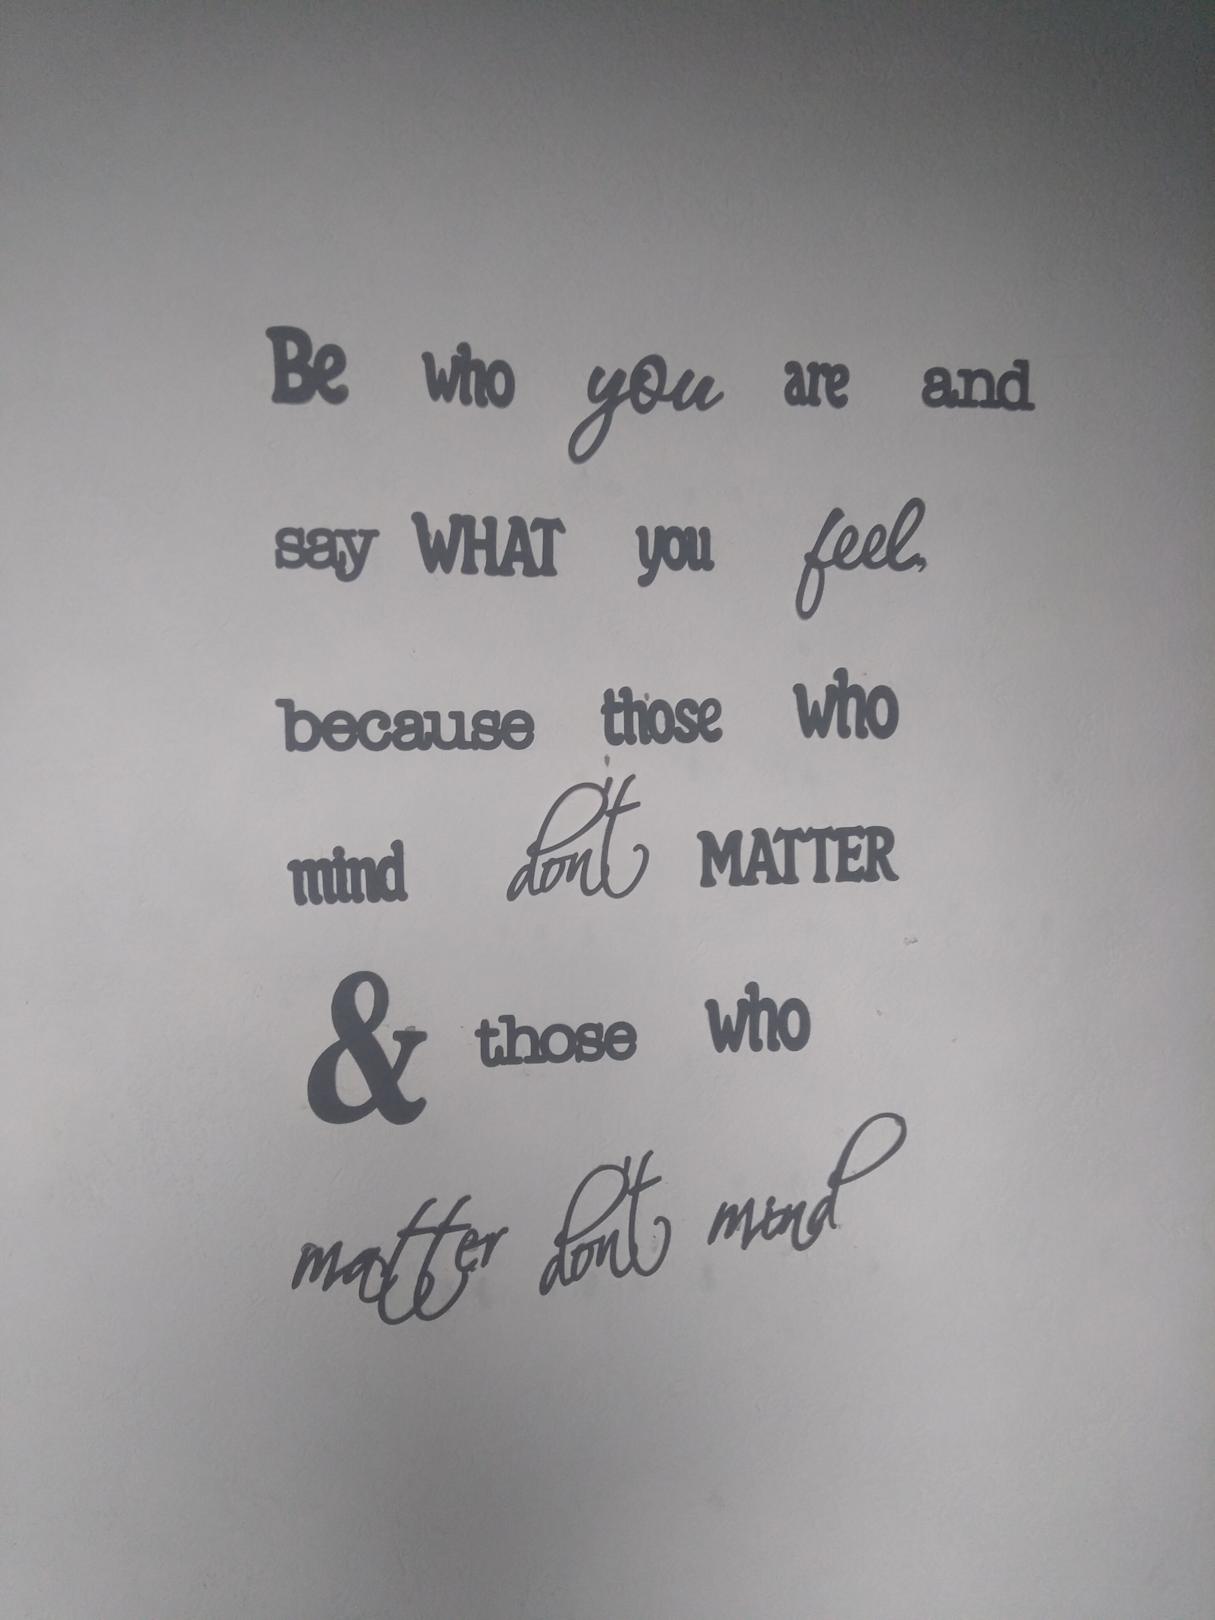 Be who you are and
say WHAT you feel,
because those who
mind don't MATTER
& those who
matter don't mind